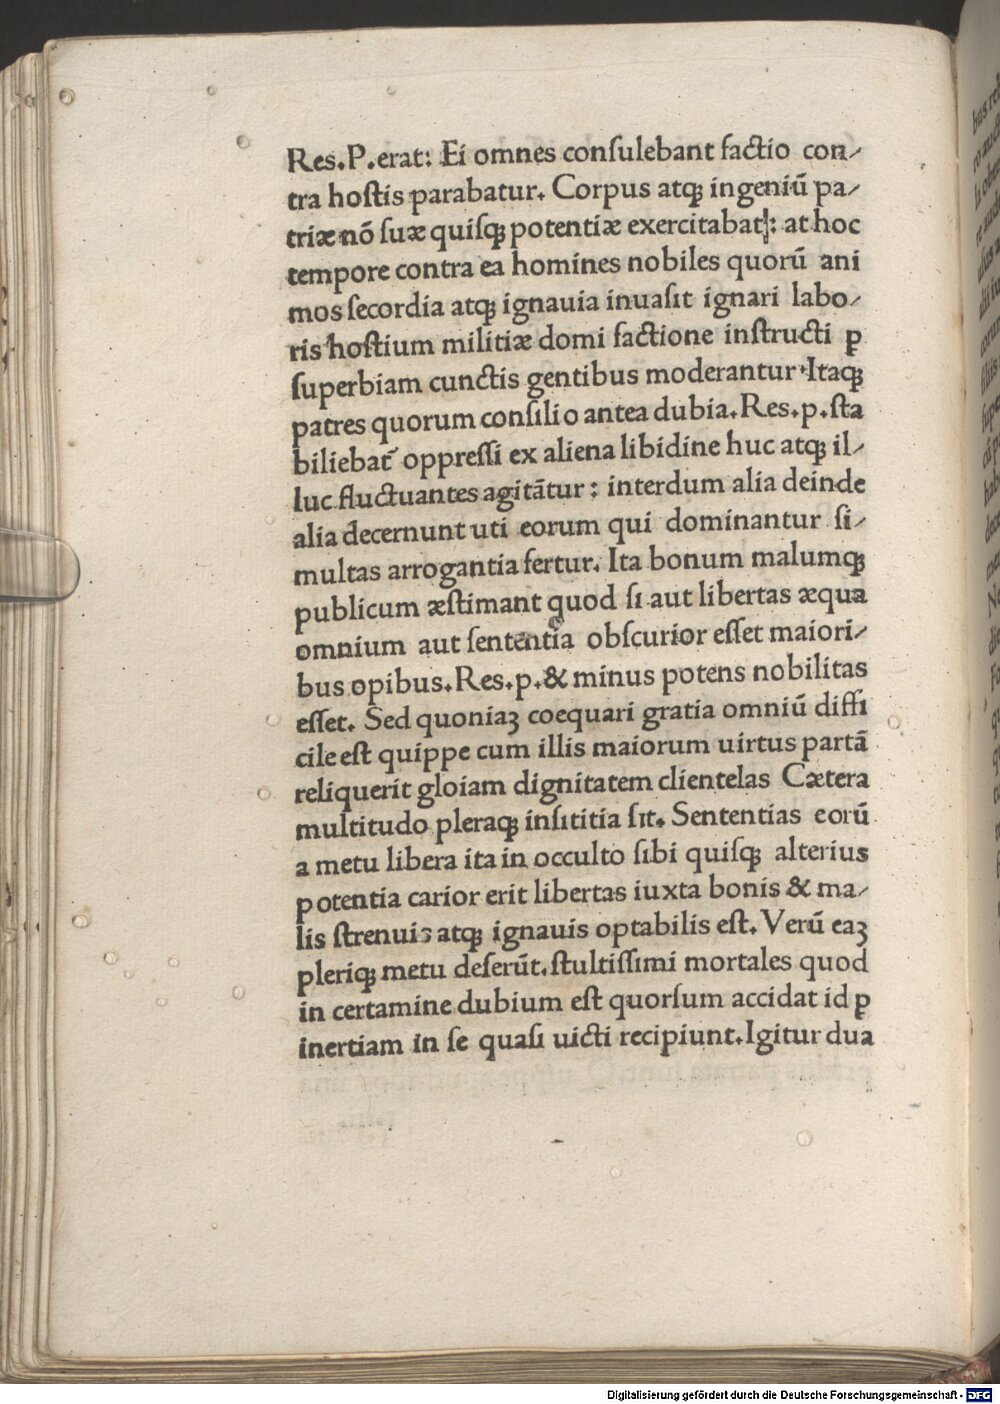 Res.P.erat: Ei omnes conſulebant factio con⸗
tra hoſtis parabatur. Corpus atꝗ ingeniū pa⸗
triæ nō ſuæ quiſꝗ potentiæ exercitabat: at hoc
tempore contra ea homines nobiles quorū ani
mos ſecordia atꝗ ignauia inuaſit ignari labo⸗
ris hoſtium militiæ domi factione inſtructi ꝑ
ſuperbiam cunctis gentibus moderantur·Itaꝗ
patres quorum conſilio antea dubia.Res.p.ſta
biliebat᷒ oppreſſi ex aliena libidine huc atꝗ il⸗
luc fluctuantes agitātur: interdum alia deinde
alia decernunt uti eorum qui dominantur ſi⸗
multas arrogantia fertur. Ita bonum malumꝗ
publicum æſtimant quod ſi aut libertas æqua
omnium aut ſententia obſcurior eſſet maiori⸗
bus opibus.Res.p.& minus potens nobilitas
eſſet. Sed quoniaꝫ coequari gratia omniū diffi
cile eſt quippe cum illis maiorum uirtus partā
reliquerit gloiam dignitatem clientelas Cætera
multitudo pleraꝗ inſititia ſit. Sententias eorū
a metu libera ita in occulto ſibi quiſꝗ alterius
potentia carior erit libertas iuxta bonis & ma⸗
lis ſtrenuis atꝗ ignauis optabilis eſt. Verū eaꝫ
pleriꝗ metu deſerūt.ſtultiſſimi mortales quod
in certamine dubium eſt quorſum accidat id ꝑ
inertiam in ſe quaſi uicti recipiunt.Igitur dua
Digitalisierung gefördert durch die Deutsche Forschungsgemeinschaft - DFG